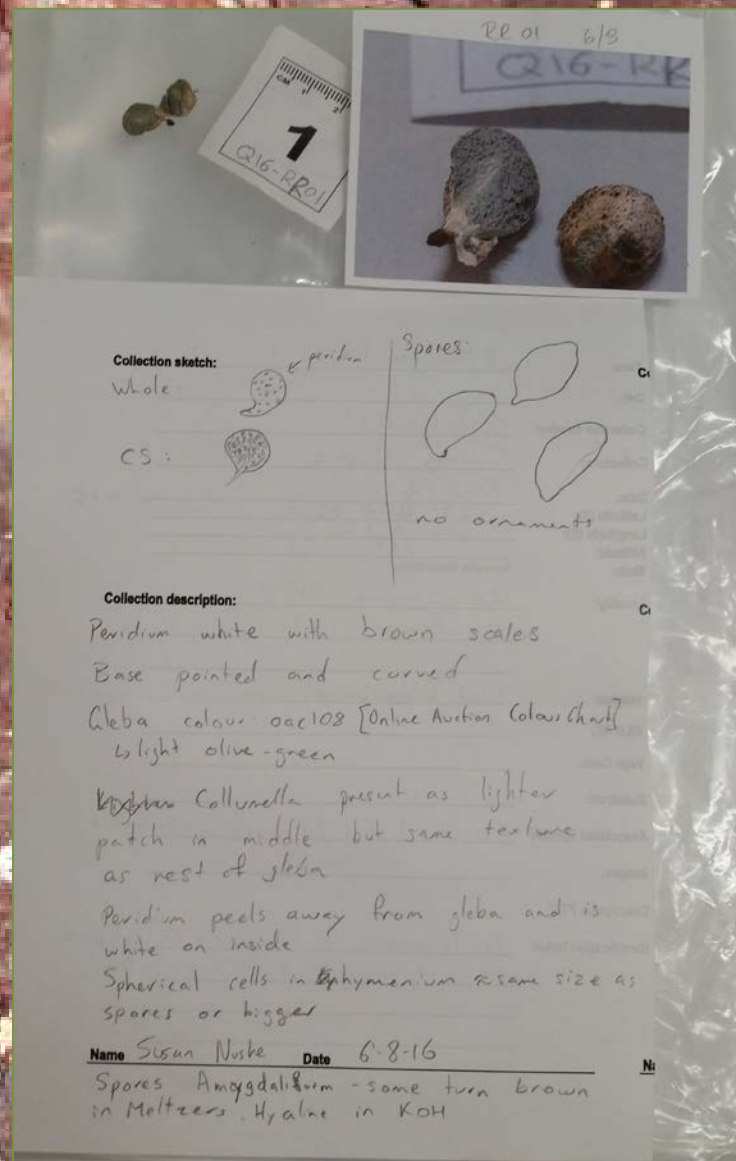 RR 01 6/8
Q16-RR
CM 1 2
1
Q16-RR01
Collection sketch:
Whole
peridium
CS:
Spores:
no ornaments
Collection description:
Peridium white with brown scales
Base pointed and curved
Gleba colour: oac108 [Online Auction Colour Chart]
↳ light olive-green
Collumella present as lighter
patch in middle but same texture
as rest of gleba
Peridium peels away from gleba and is
white on inside
Spherical cells in ephymenium ≈ same size as
spores or bigger
Name Susan Nuske Date 6-8-16
Spores Amygdaliform - some turn brown
in Meltzers. Hyalne in KOH